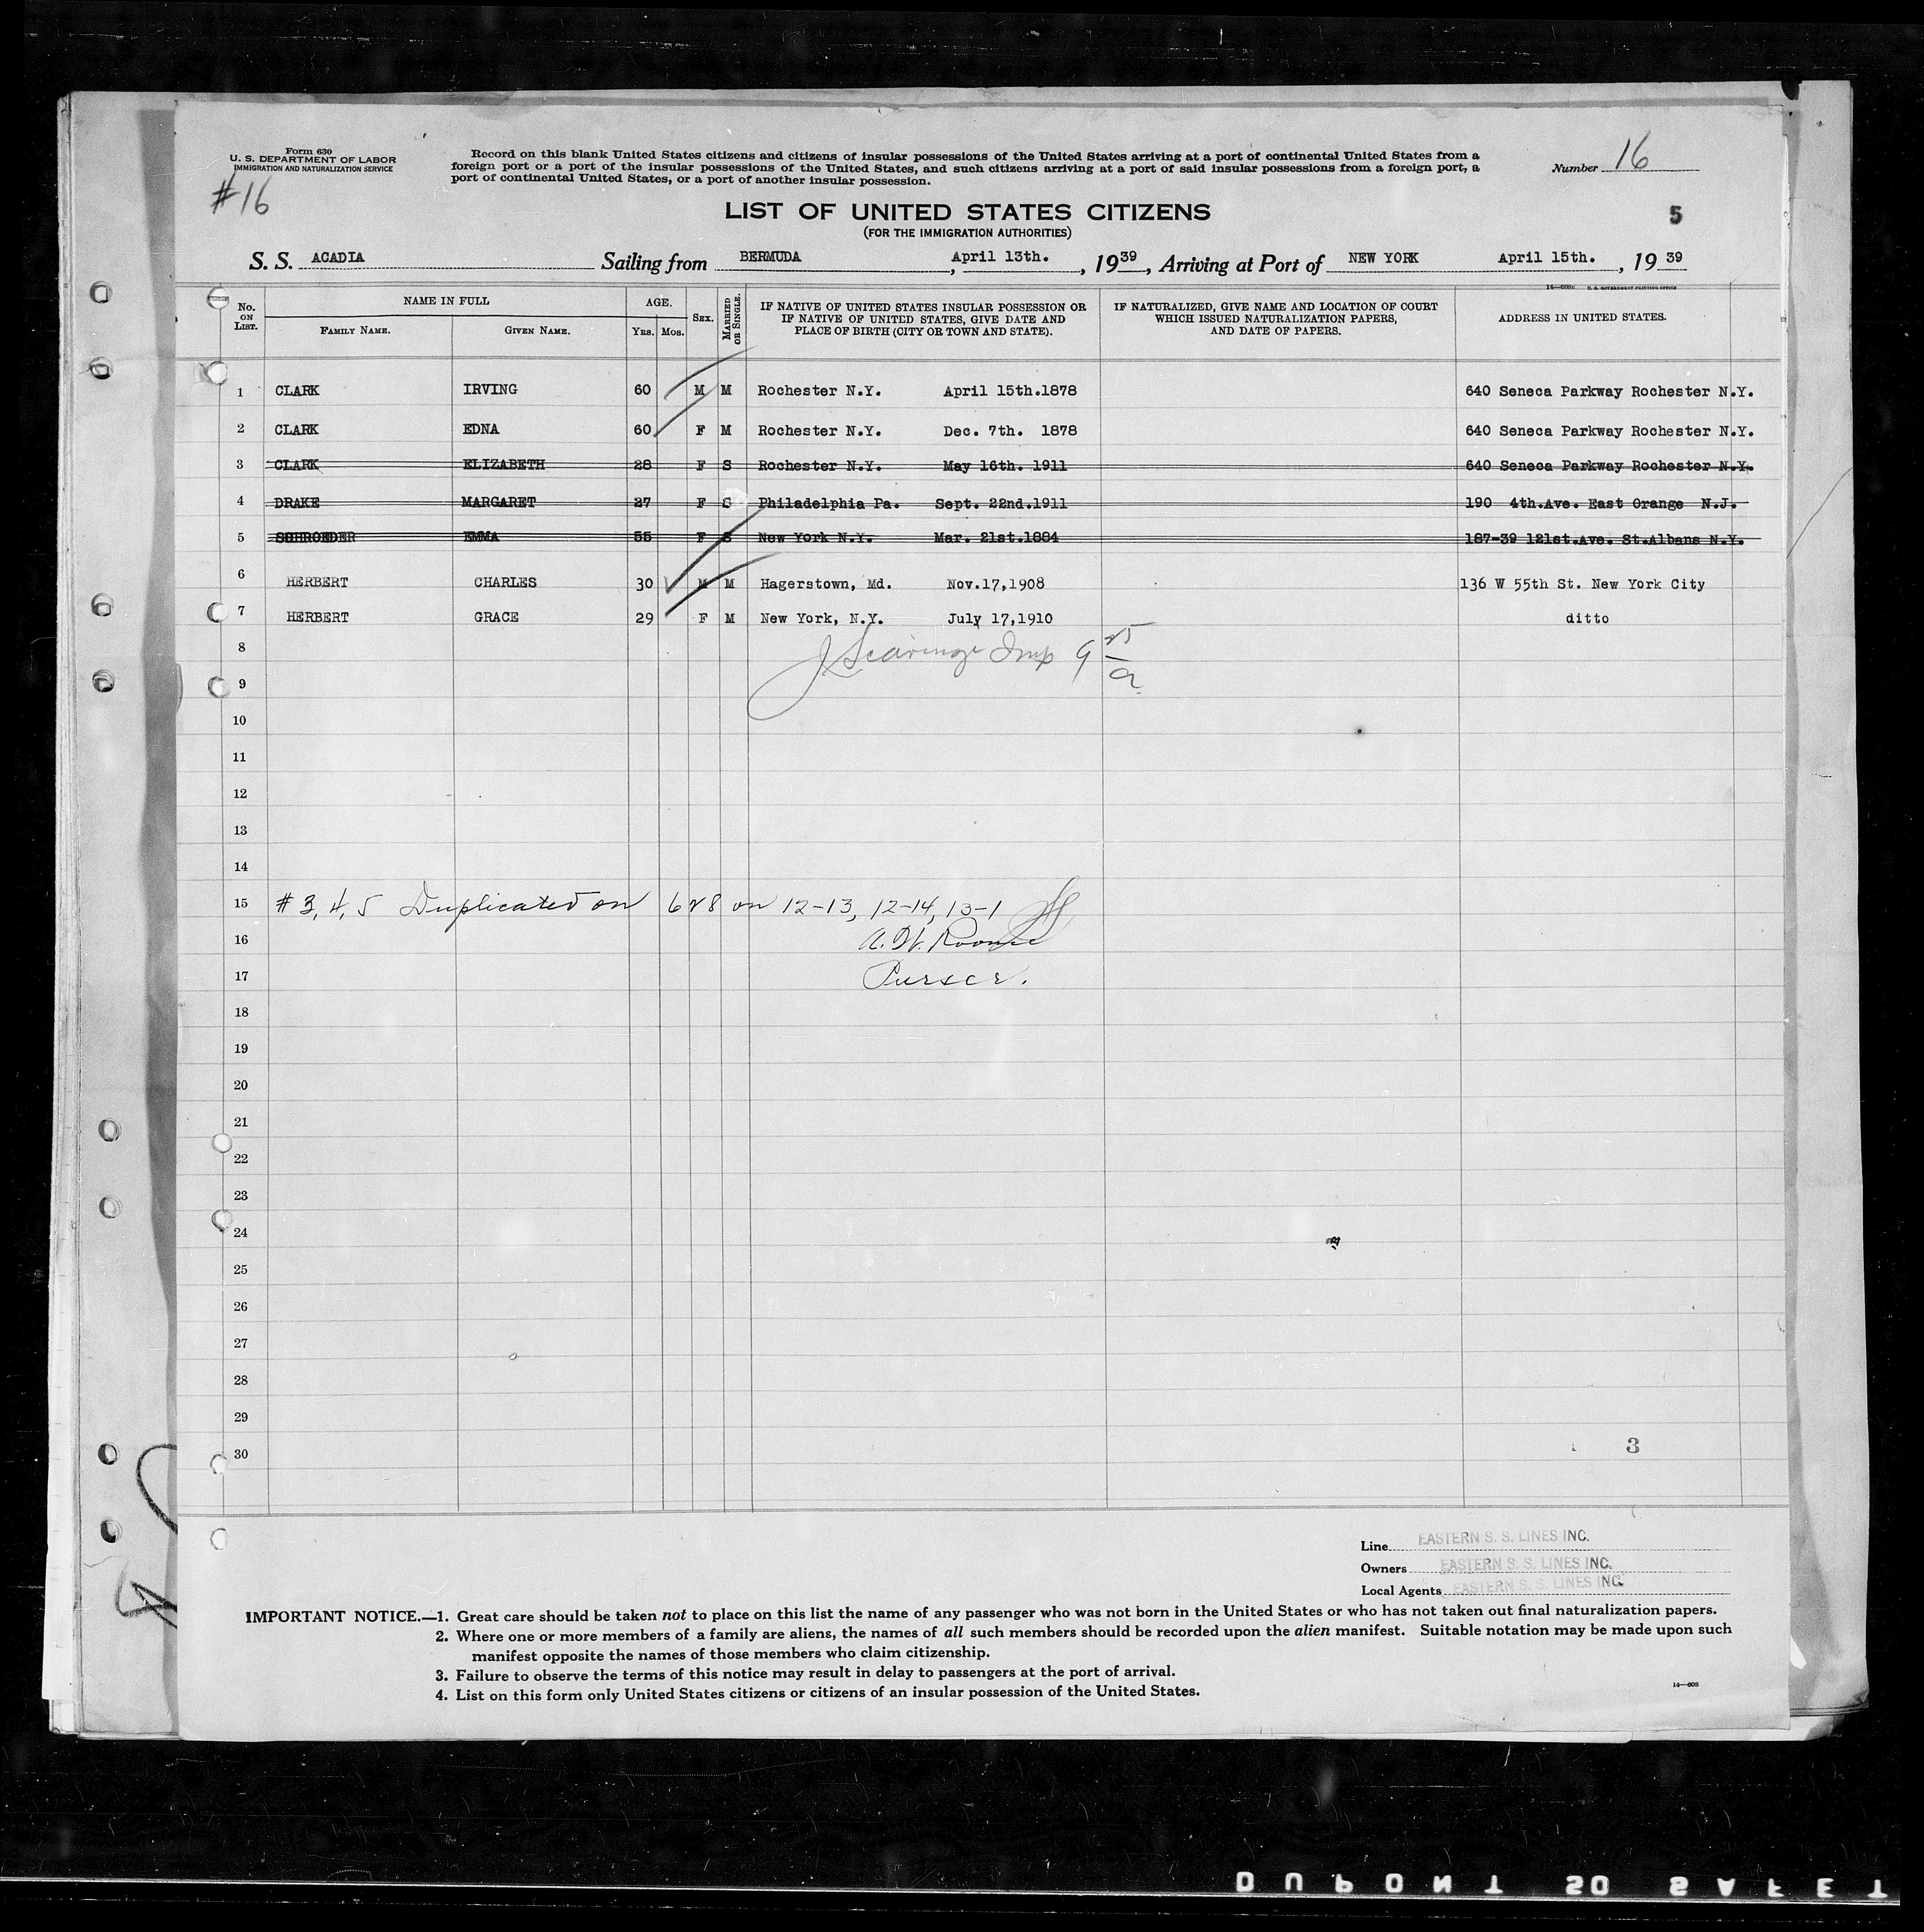 Form 630
U. S. DEPARTMENT OF LABOR
IMMIGRATION AND NATURALIZATION SERVICE
#16
Record on this blank United States citizens and citizens of insular possessions of the United States arriving at a port of continental United States from a
foreign port or a port of the insular possessions of the United States, and such citizens arriving at a port of said insular possessions from a foreign port, a
port of continental United States, or a port of another insular possession.
Number 16
LIST OF UNITED STATES CITIZENS
(FOR THE IMMIGRATION AUTHORITIES)
5
S. S. ACADIA Sailing from BERMUDA, April 13th., 1939, Arriving at Port of NEW YORK April 15th., 1939
No. ON LIST. NAME IN FULL FAMILY NAME. GIVEN NAME. AGE. YRS. MOS. SEX. MARRIED OR SINGLE. IF NATIVE OF UNITED STATES INSULAR POSSESSION OR IF NATIVE OF UNITED STATES, GIVE DATE AND PLACE OF BIRTH (CITY OR TOWN AND STATE). IF NATURALIZED, GIVE NAME AND LOCATION OF COURT WHICH ISSUED NATURALIZATION PAPERS, AND DATE OF PAPERS. ADDRESS IN UNITED STATES.
1 CLARK IRVING 60 M M Rochester N.Y. April 15th.1878 640 Seneca Parkway Rochester N.Y.
2 CLARK EDNA 60 F M Rochester N.Y. Dec. 7th. 1878 640 Seneca Parkway Rochester N.Y.
3 CLARK ELIZABETH 28 F S Rochester N.Y. May 16th. 1911 640 Seneca Parkway Rochester N.Y.
4 DRAKE MARGARET 27 F S Philadelphia Pa. Sept. 22nd.1911 190 4th.Ave. East Orange N.J.
5 SCHROEDER EMMA 55 F S New York N.Y. Mar. 21st.1884 187-39 121st.Ave. St.Albans N.Y.
6 HERBERT CHARLES 30 M M Hagerstown, Md. Nov.17,1908 136 W 55th St. New York City
7 HERBERT GRACE 29 F M New York, N.Y. July 17,1910 ditto
8
9
10
11
12
13
14
15 #3, 4, 5 Duplicated on 628 on 12-13, 12-14, 13-1
16 A. W.
17 Purser.
18
19
20
21
22
23
24
25
26
27
28
29
30
3
Line EASTERN S. S. LINES INC.
Owners EASTERN S. S. LINES INC.
Local Agents EASTERN S. S. LINES INC.
IMPORTANT NOTICE.—1. Great care should be taken not to place on this list the name of any passenger who was not born in the United States or who has not taken out final naturalization papers.
2. Where one or more members of a family are aliens, the names of all such members should be recorded upon the alien manifest. Suitable notation may be made upon such
manifest opposite the names of those members who claim citizenship.
3. Failure to observe the terms of this notice may result in delay to passengers at the port of arrival.
4. List on this form only United States citizens or citizens of an insular possession of the United States.
DUPONT SAFET